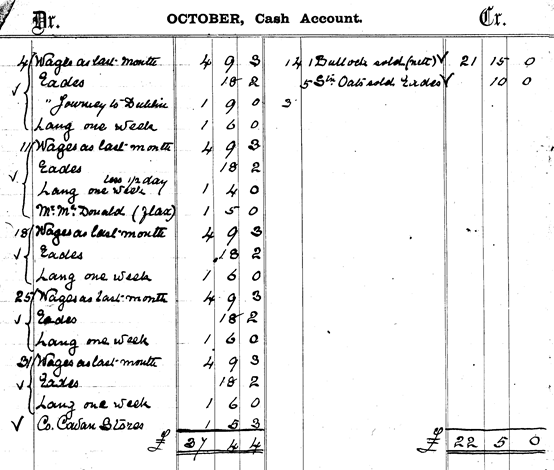 Dr. OCTOBER, Cash Account. Cr.
4 Wages as last month 4 9 3
Eades 18 2
" Journey to Dublin 1 9 0
Lang one week 1 6 0
11 Wages as last month 4 9 3
Eades 18 2
less 1/2 day
Lang one week 1 4 0
Mr. McDonald (flax) 1 5 0
18 Wages as last month 4 9 3
Eades 18 2
Lang one week 1 6 0
25 Wages as last month 4 9 3
Eades 18 2
Lang one week 1 6 0
31 Wages as last month 4 9 3
Eades 18 2
Lang one week 1 6 0
Co. Cavan Stores 1 5 3
£ 37 4 4
14 1 Bullock sold (nett) 21 15 0
5 Stn Oats sold Eades 10 0
3
£ 22 5 0